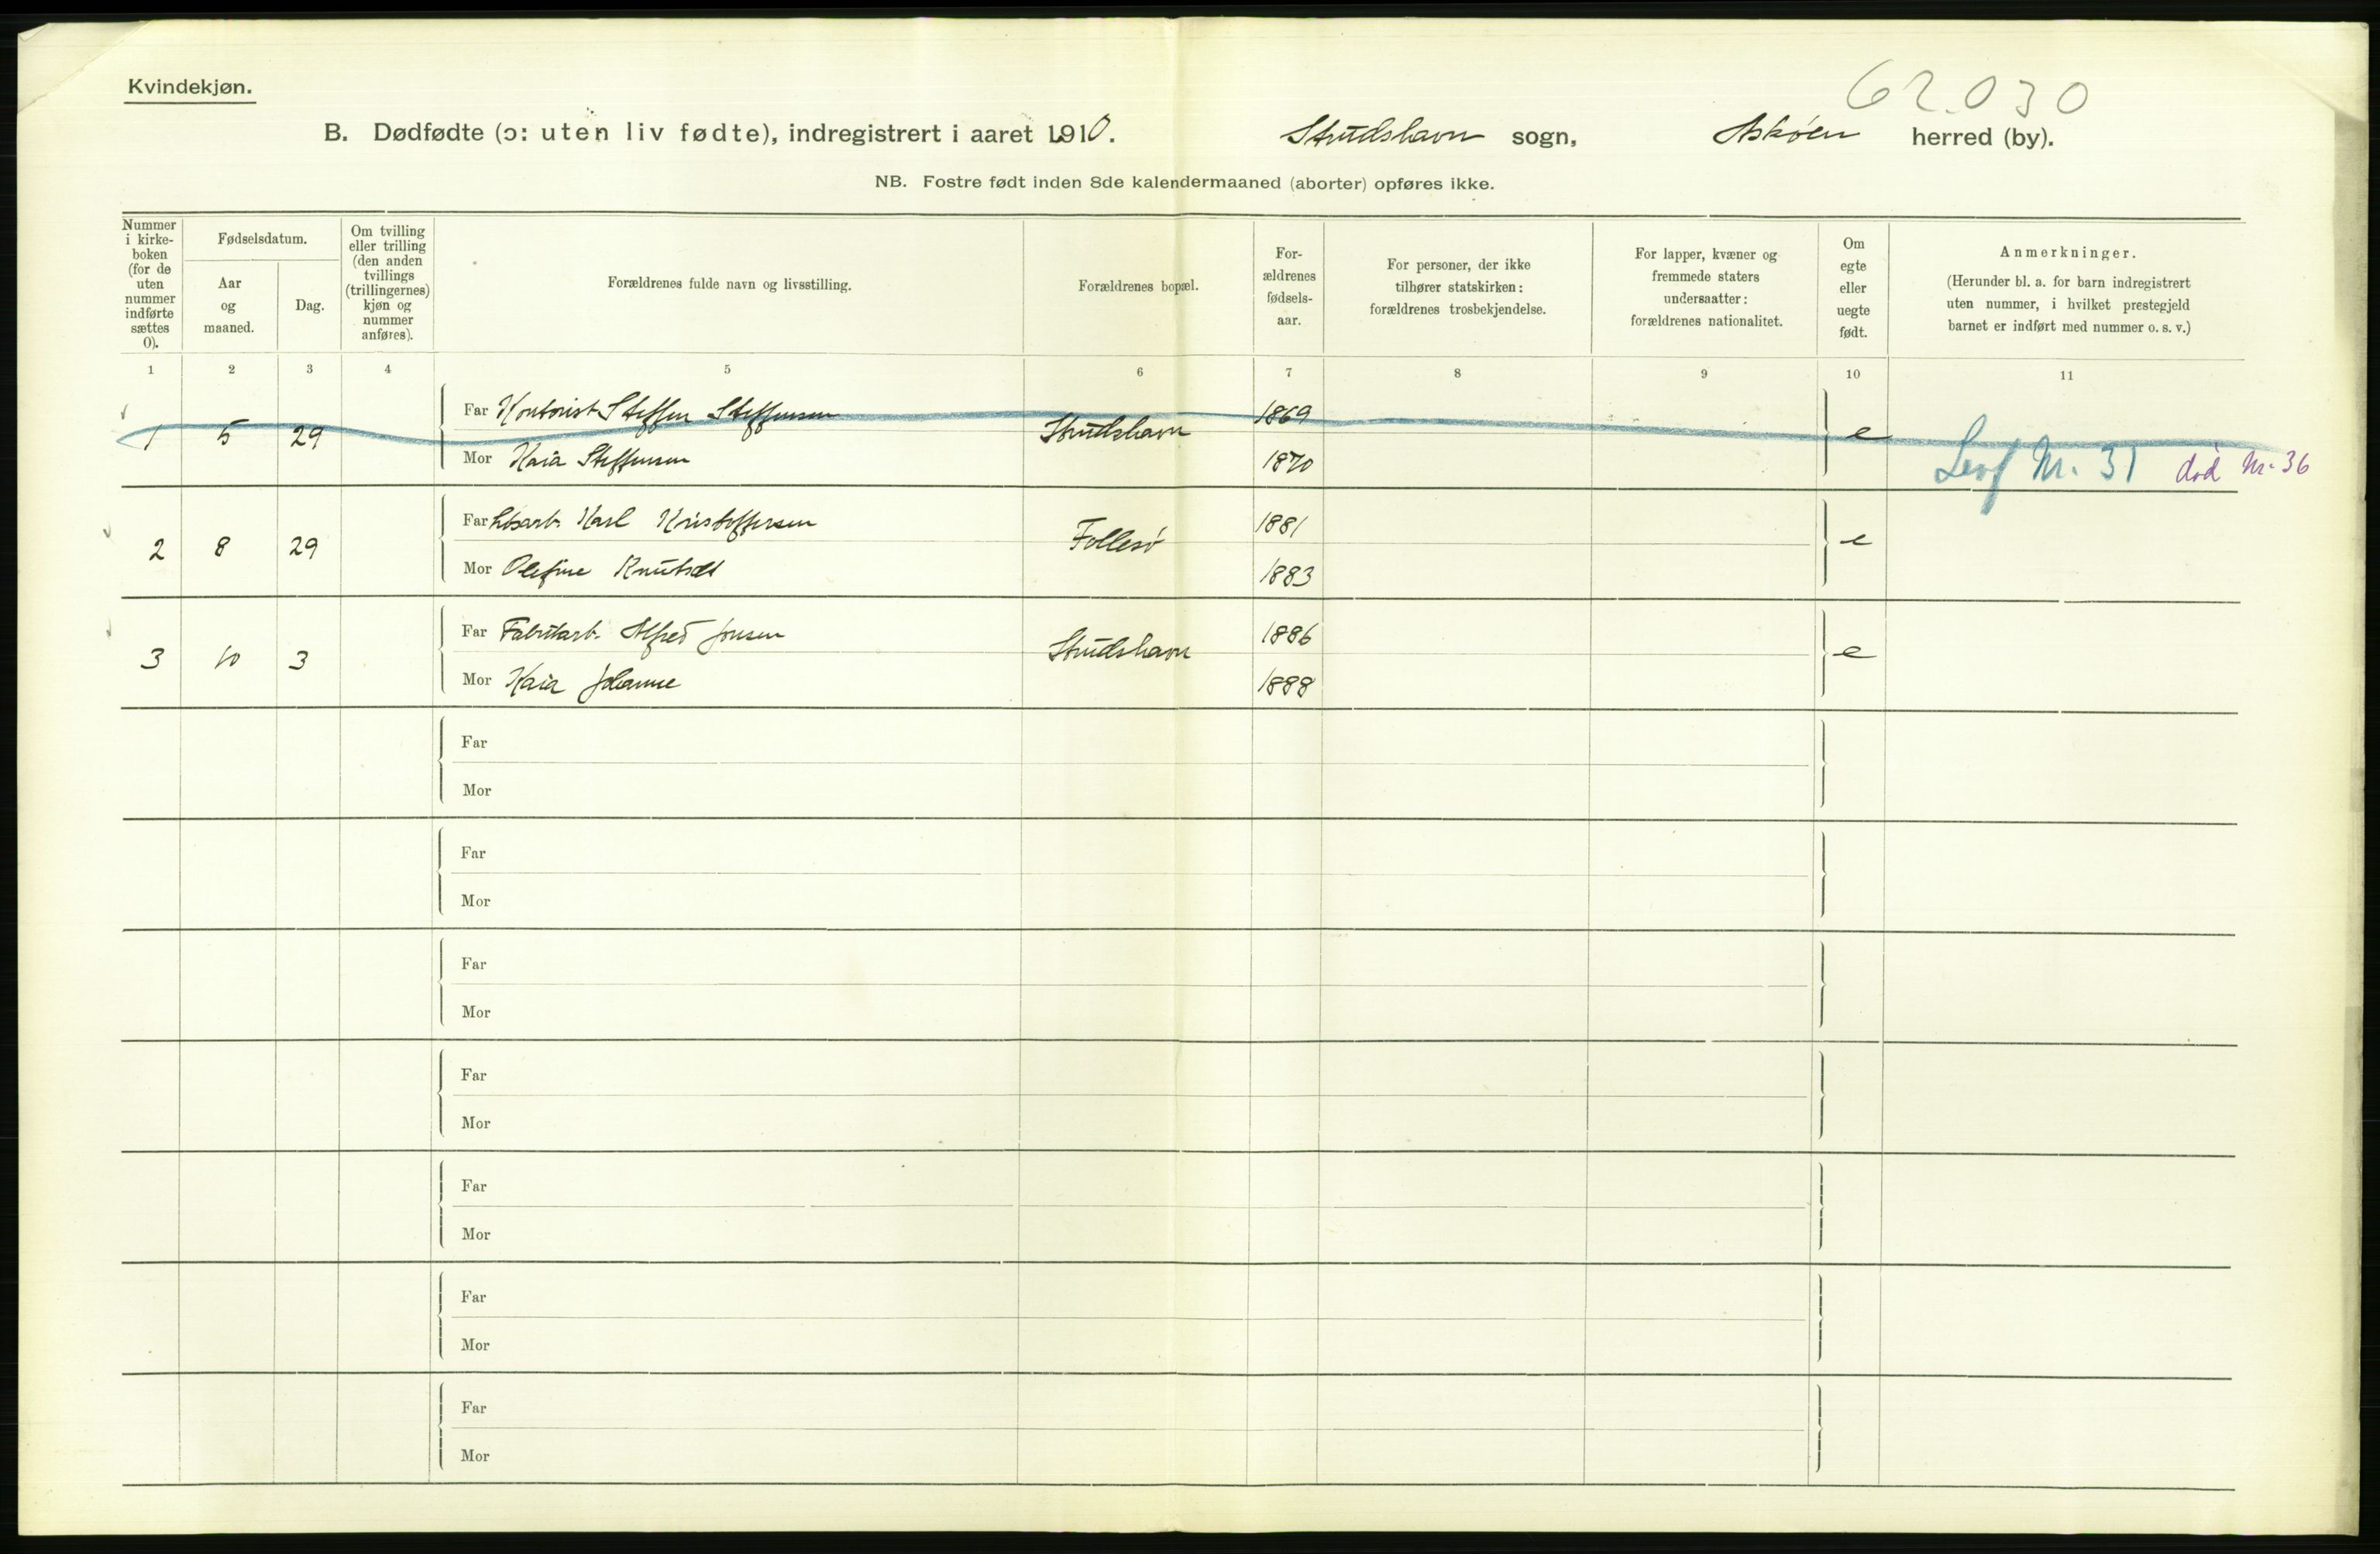 Kvindekjøn.
62.030
B. Dødfødte (ɔ: uten liv fødte), indregistrert i aaret 1910. Strudshavn sogn, Askøen herred (by).
NB. Fostre født inden 8de kalendermaaned (aborter) opføres ikke.
Nummer i kirke-boken (for de uten nummer indførte sættes 0).
Fødselsdatum.
Aar og maaned.
Dag.
Om tvilling eller trilling (den anden tvillings (trillingernes) kjøn og nummer anføres).
Forældrenes fulde navn og livsstilling.
Forældrenes bopæl.
For-ældrenes fødsels-aar.
For personer, der ikke tilhører statskirken: forældrenes trosbekjendelse.
For lapper, kvæner og fremmede staters undersaatter: forældrenes nationalitet.
Om egte eller uegte født.
Anmerkninger.
(Herunder bl. a. for barn indregistrert uten nummer, i hvilket prestegjeld barnet er indført med nummer o. s. v.)
1 2 3 4 5 6 7 8 9 10 11
Far Kontorist Steffen Steffensen 1869
1 5 29 Strudshavn e
Mor Kaia Steffensen 1870
Levf Nr. 31 død Nr. 36
Far Karl Kristoffersen 1881
2 8 29 Follesø e
Mor Olefine Knutsdt 1883
Far Fabrikarb. Alfred Jonsen 1886
3 10 3 Strudshavn e
Mor Kaia Johanne 1888
Far
Mor
Far
Mor
Far
Mor
Far
Mor
Far
Mor
Far
Mor
Far
Mor